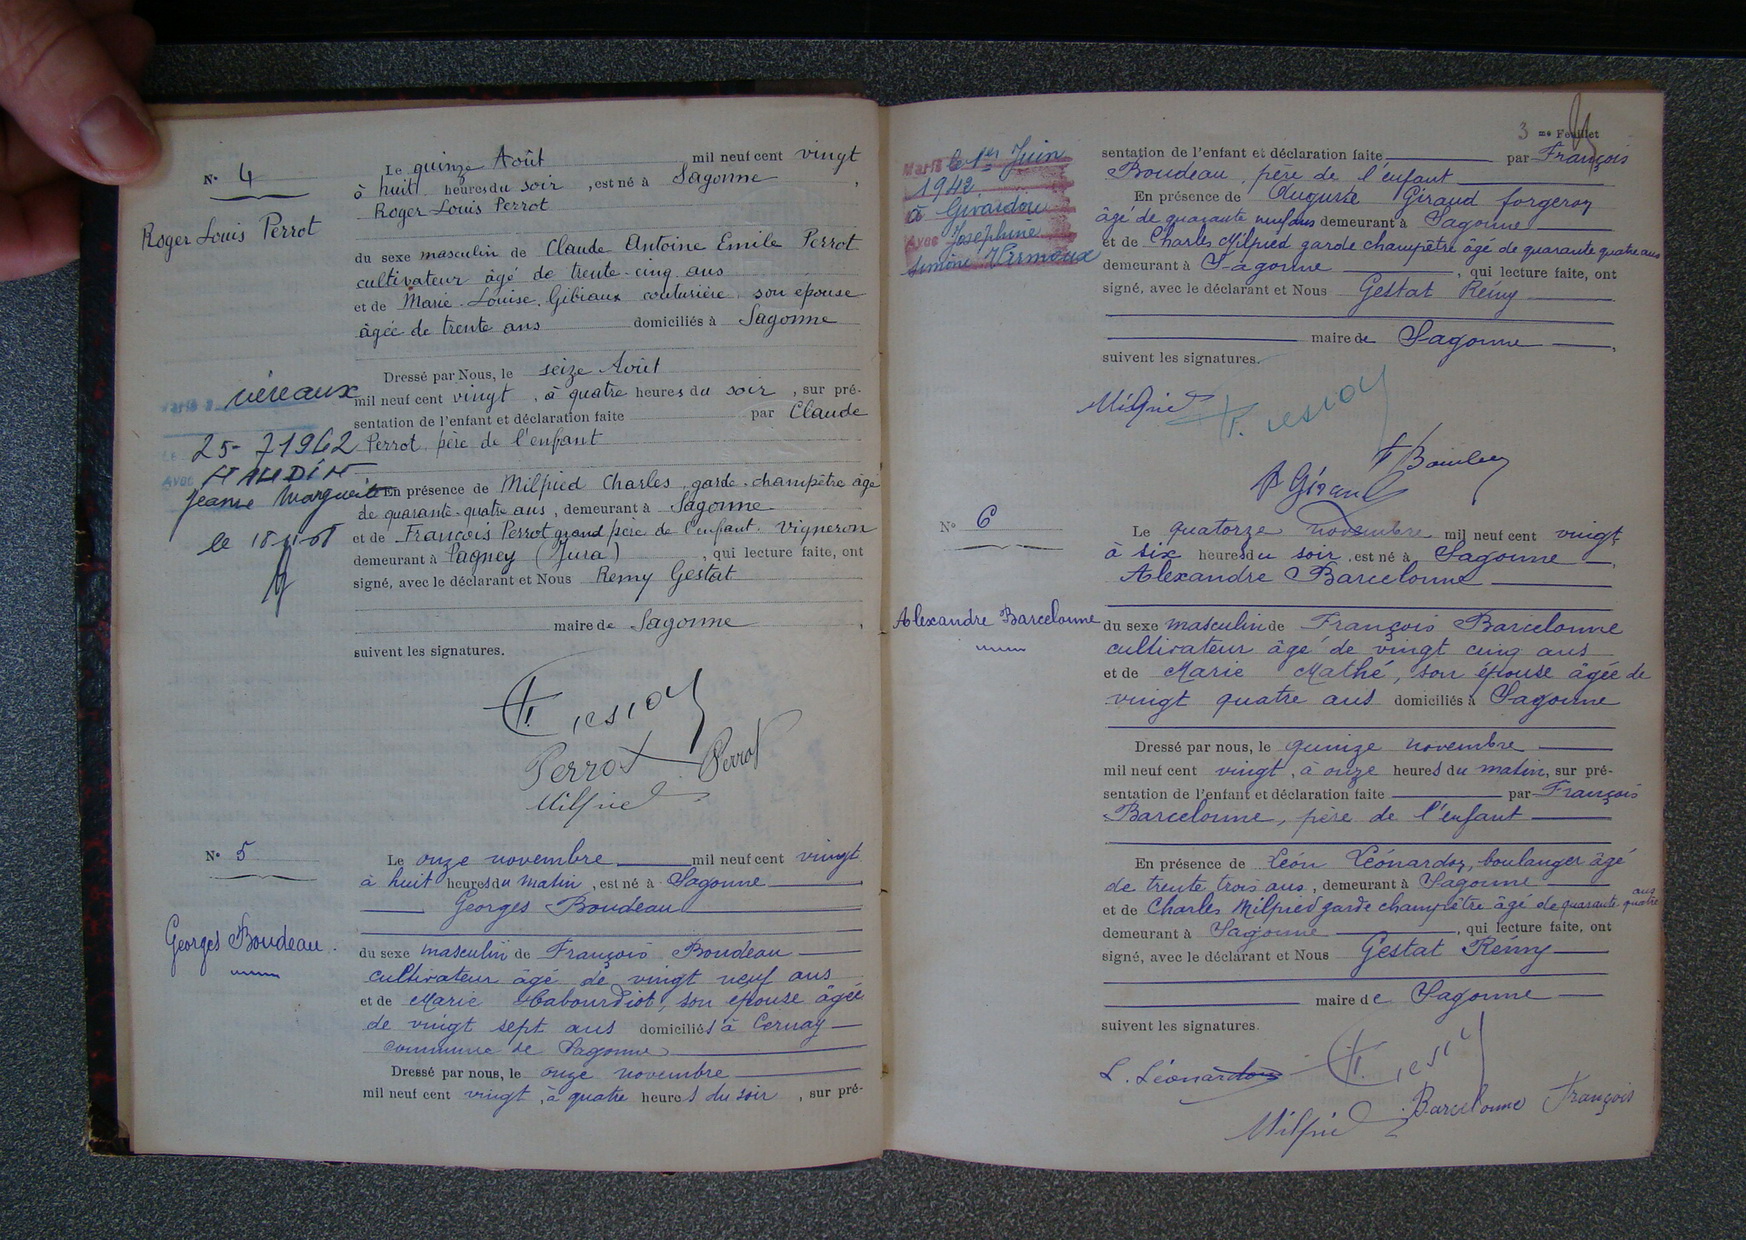 N° 4
Roger Louis Perrot
Le quinze Août mil neuf cent vingt
à huit heures du soir, est né à Sagonne,
Roger Louis Perrot
du sexe masculin de Claude Antoine Emile Perrot
cultivateur âgé de trente-cinq ans
et de Marie-Louise Gibiaux couturière son épouse
âgée de trente ans domiciliés à Sagonne
Dressé par Nous, le seize Août
mil neuf cent vingt, à quatre heures du soir, sur pré-
sentation de l'enfant et déclaration faite par Claude
Perrot, père de l'enfant
En présence de Milpied Charles, garde-champêtre âgé
de quarante-quatre ans, demeurant à Sagonne
et de François Perrot grand père de l'enfant. Vigneron
demeurant à Pagney (Jura), qui lecture faite, ont
signé, avec le déclarant et Nous Remy Gestat
maire de Sagonne,
suivent les signatures.
Marié à Véreaux
Le 25-7 1962
Avec
Jeanne Marguerite
le 18
Perrot Perrot
Milpied
N° 5
Georges Boudeau.
Le onze novembre mil neuf cent vingt
à huit heures du matin, est né à Sagonne
Georges Boudeau
du sexe masculin de François Boudeau
cultivateur âgé de vingt neuf ans
et de Marie Habourdiot, son épouse âgée
de vingt sept ans domiciliés à Cernay
commune de Sagonne
Dressé par nous, le onze novembre
mil neuf cent vingt, à quatre heures du soir, sur pré-
3 me Feuillet
Marié le 1er Juin
1942
à Givardon
Avec Joséphine
Simone Vermoux
sentation de l'enfant et déclaration faite par François
Boudeau, père de l'enfant
En présence de Auguste Giraud forgeron
âgé de quarante neuf ans demeurant à Sagonne
et de Charles Milpied garde champêtre âgé de quarante quatre ans
demeurant à Sagonne, qui lecture faite, ont
signé, avec le déclarant et Nous Gestat Rémy
maire de Sagonne,
suivent les signatures.
Milpied
F Boudeau
A Giraud
N° 6
Alexandre Barcelonne
Le quatorze novembre mil neuf cent vingt
à six heures du soir, est né à Sagonne,
Alexandre Barcelonne
du sexe masculin de François Barcelonne
cultivateur âgé de vingt cinq ans
et de Marie Mathé, son épouse âgée de
vingt quatre ans domiciliés à Sagonne
Dressé par nous, le quinze novembre
mil neuf cent vingt, à onze heures du matin, sur pré-
sentation de l'enfant et déclaration faite par François
Barcelonne, père de l'enfant
En présence de Léon Léonardon, boulanger âgé
de trente trois ans, demeurant à Sagonne
et de Charles Milpied garde champêtre âgé de quarante quatre ans
demeurant à Sagonne, qui lecture faite, ont
signé, avec le déclarant et Nous Gestat Rémy
maire de Sagonne
suivent les signatures.
L. Léonardon
Barcelonne François
Milpied